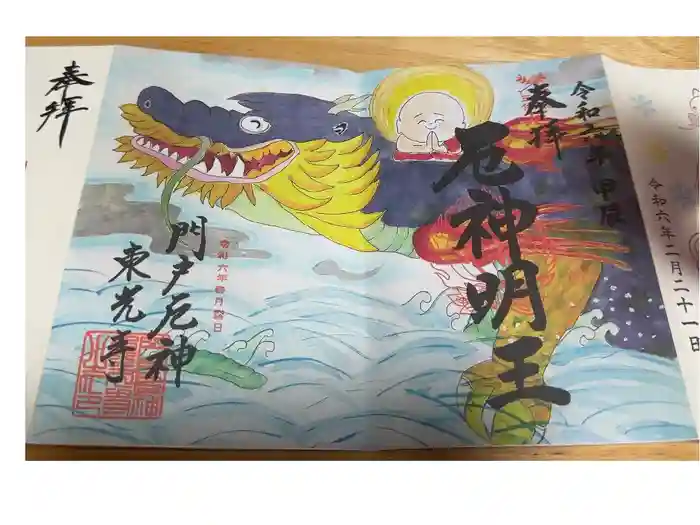 奉拝
令和六年甲辰
奉拝
厄神明王
令和六年二月二十一日
令和六年 月 日
門戸厄神
東光寺